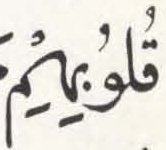 قُلُوبِهِمُ